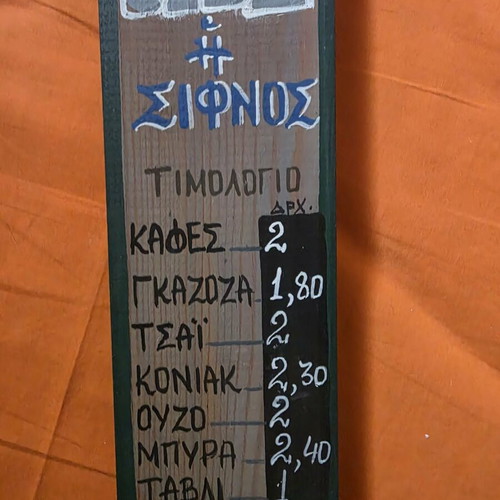 Η
ΣΙΦΝΟΣ
ΤΙΜΟΛΟΓΙΟ
ΔΡΧ.
ΚΑΦΕΣ 2
ΓΚΑΖΟΖΑ 1,80
ΤΣΑΪ 2
ΚΟΝΙΑΚ 2,30
ΟΥΖΟ 2
ΜΠΥΡΑ 2,40
ΤΑΒΛΙ 1